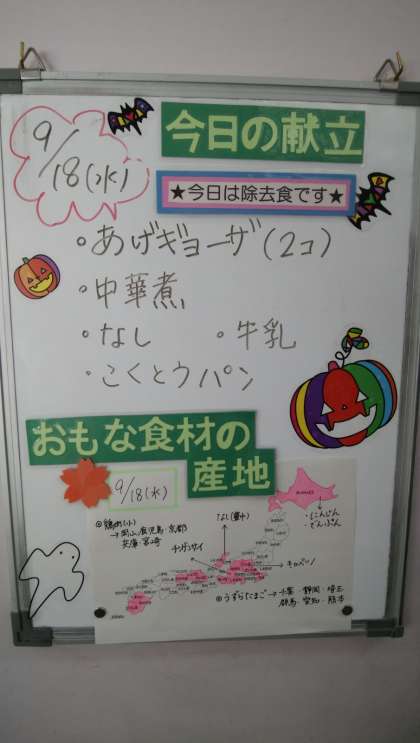 9/18(水)
今日の献立
★今日は除去食です★
・あげギョーザ(2コ)
・中華煮
・なし ・牛乳
・こくとうパン
おもな食材の
産地
9/18(水)
・にんじん
・でんぷん
→岡山・鹿児島・京都
兵庫・宮崎
チンゲンサイ
→キャベツ
うずらたまご→千葉・静岡・埼玉
群馬・愛知・熊本